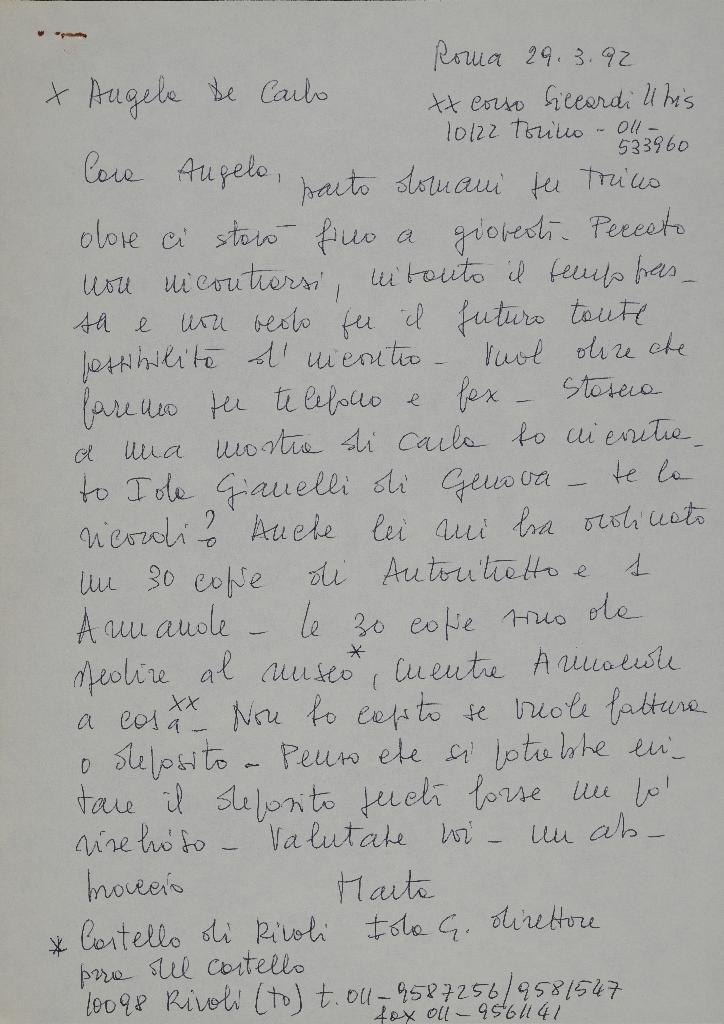 Roma 29.3.92
x Angela De Carlo
xx corso Siccardi 11 bis
10122 Torino - 011-
533960
Cara Angela, parto domani per Torino
dove ci starò fino a giovedì. Peccato
non incontrarsi, intanto il tempo pas-
sa e non vedo per il futuro tante
possibilità d'incontro - Vuol dire che
faremo per telefono e fax - Stasera
a una mostra di Carla ho incontra-
to Ida Gianelli di Genova - te la
ricordi? Anche lei mi ha ordinato
un 30 copie di Autoritratto e 1
Armande - le 30 copie sono da
spedire al museo*, mentre Armande
a casa xx - Non ho capito se vuole fattura
o deposito - Penso che si potrebbe evi-
tare il deposito perché forse un po'
rischioso - Valutate voi - un ab-
braccio Marta
* Castello di Rivoli Ida G. direttore
pza del castello
10098 Rivoli (to) t. 011-9587256/9581547
fax 011-9561141